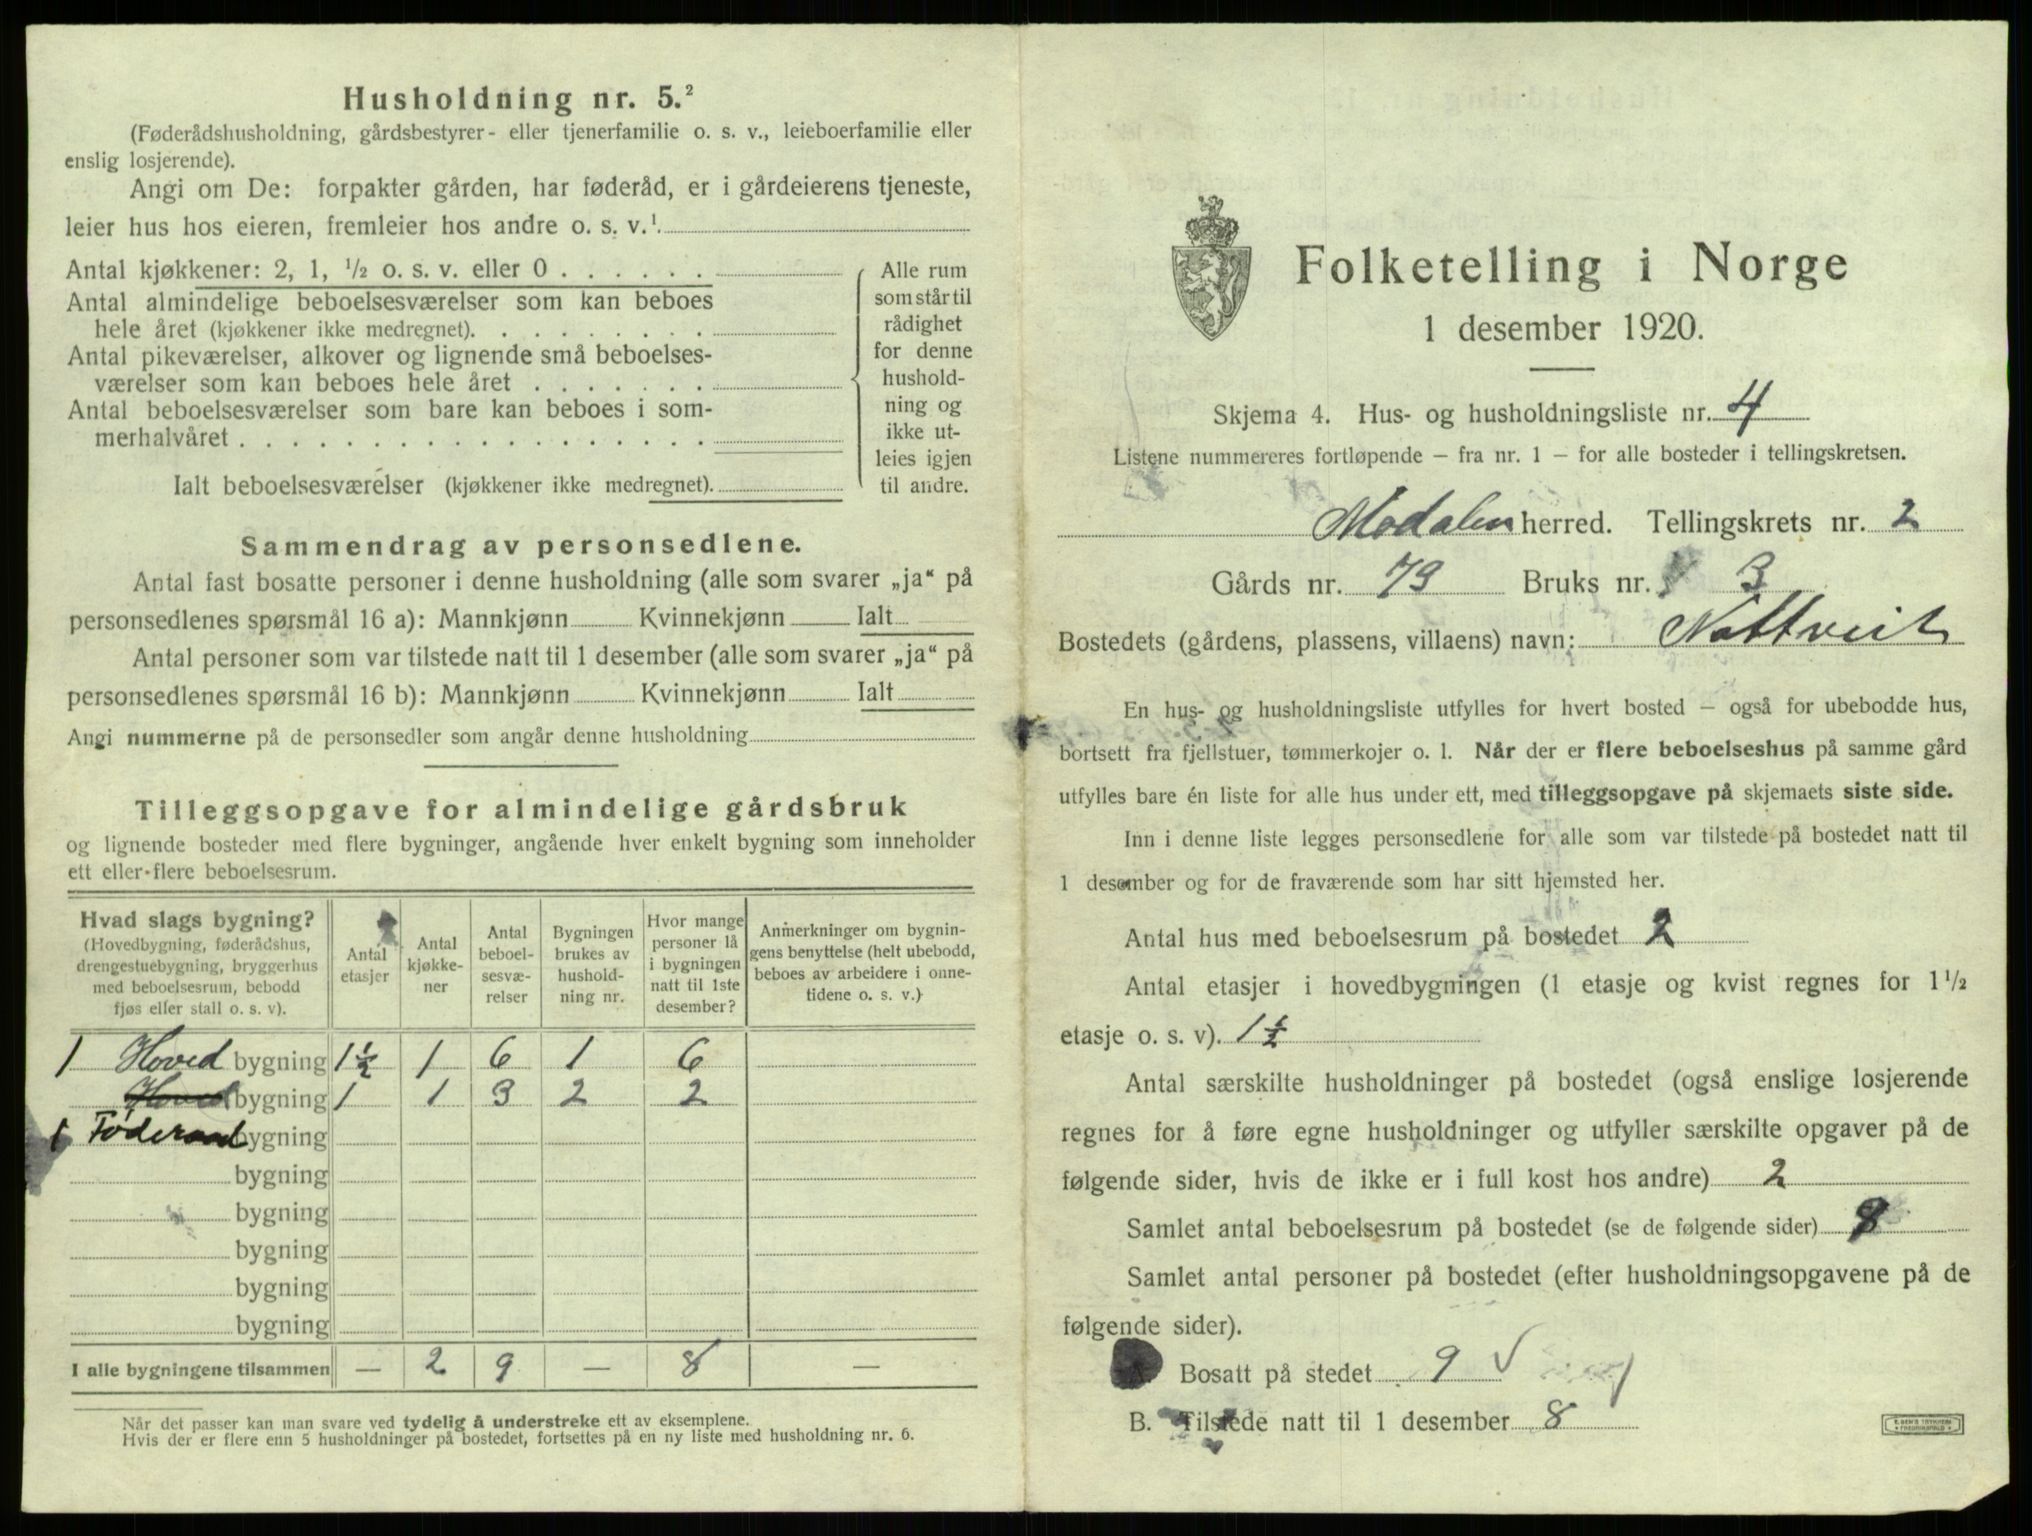 Husholdning nr. 5.²
(Føderådshusholdning, gårdsbestyrer- eller tjenerfamilie o. s. v., leieboerfamilie eller
enslig losjerende).
Angi om De: forpakter gården, har føderåd, er i gårdeierens tjeneste,
leier hus hos eieren, fremleier hos andre o. s. v.¹
Antal kjøkkener: 2, 1, ½ o. s. v. eller 0
Antal almindelige beboelsesværelser som kan beboes
hele året (kjøkkener ikke medregnet).
Antal pikeværelser, alkover og lignende små beboelses-
værelser som kan beboes hele året
Antal beboelsesværelser som bare kan beboes i som-
merhalvåret
Ialt beboelsesværelser (kjøkkener ikke medregnet).
Alle rum
som står til
rådighet
for denne
hushold-
ning og
ikke ut-
leies igjen
til andre.
Sammendrag av personsedlene.
Antal fast bosatte personer i denne husholdning (alle som svarer „ja“ på
personsedlenes spørsmål 16 a): Mannkjønn Kvinnekjønn Ialt
Antal personer som var tilstede natt til 1 desember (alle som svarer „ja“ på
personsedlenes spørsmål 16 b): Mannkjønn Kvinnekjønn Ialt
Angi nummerne på de personsedler som angår denne husholdning
Tilleggsopgave for almindelige gårdsbruk
og lignende bosteder med flere bygninger, angående hver enkelt bygning som inneholder
ett eller flere beboelsesrum.
Hvad slags bygning?
(Hovedbygning, føderådshus,
drengestuebygning, bryggerhus
med beboelsesrum, bebodd
fjøs eller stall o. s. v).
Antal
etasjer
Antal
kjøkke-
ner
Antal
beboel-
sesvæ-
relser
Bygningen
brukes av
hushold-
ning nr.
Hvor mange
personer lå
i bygningen
natt til 1ste
desember?
Anmerkninger om bygnin-
gens benyttelse (helt ubebodd,
beboes av arbeidere i onne-
tidene o. s. v.)
1 Hoved bygning 1½ 1 6 1 6
Hoved bygning 1 1 3 2 2
1 Føderaad bygning
bygning
bygning
bygning
bygning
bygning
I alle bygningene tilsammen — 2 9 — 8 —
Når det passer kan man svare ved tydelig å understreke ett av eksemplene.
Hvis der er flere enn 5 husholdninger på bostedet, fortsettes på en ny liste med husholdning nr. 6.
Folketelling i Norge
1 desember 1920.
Skjema 4. Hus- og husholdningsliste nr. 4
Listene nummereres fortløpende – fra nr. 1 – for alle bosteder i tellingskretsen.
Modalen herred. Tellingskrets nr. 2
Gårds nr. 79 Bruks nr. 3
Bostedets (gårdens, plassens, villaens) navn: Nottveit
En hus- og husholdningsliste utfylles for hvert bosted – også for ubebodde hus,
bortsett fra fjellstuer, tømmerkojer o. l. Når der er flere beboelseshus på samme gård
utfylles bare én liste for alle hus under ett, med tilleggsopgave på skjemaets siste side.
Inn i denne liste legges personsedlene for alle som var tilstede på bostedet natt til
1 desember og for de fraværende som har sitt hjemsted her.
Antal hus med beboelsesrum på bostedet 2
Antal etasjer i hovedbygningen (1 etasje og kvist regnes for 1½
etasje o. s. v). 1½
Antal særskilte husholdninger på bostedet (også enslige losjerende
regnes for å føre egne husholdninger og utfyller særskilte opgaver på de
følgende sider, hvis de ikke er i full kost hos andre) 2
Samlet antal beboelsesrum på bostedet (se de følgende sider) 9
Samlet antal personer på bostedet (efter husholdningsopgavene på de
følgende sider).
Bosatt på stedet 9 √
B. Tilstede natt til 1 desember 8